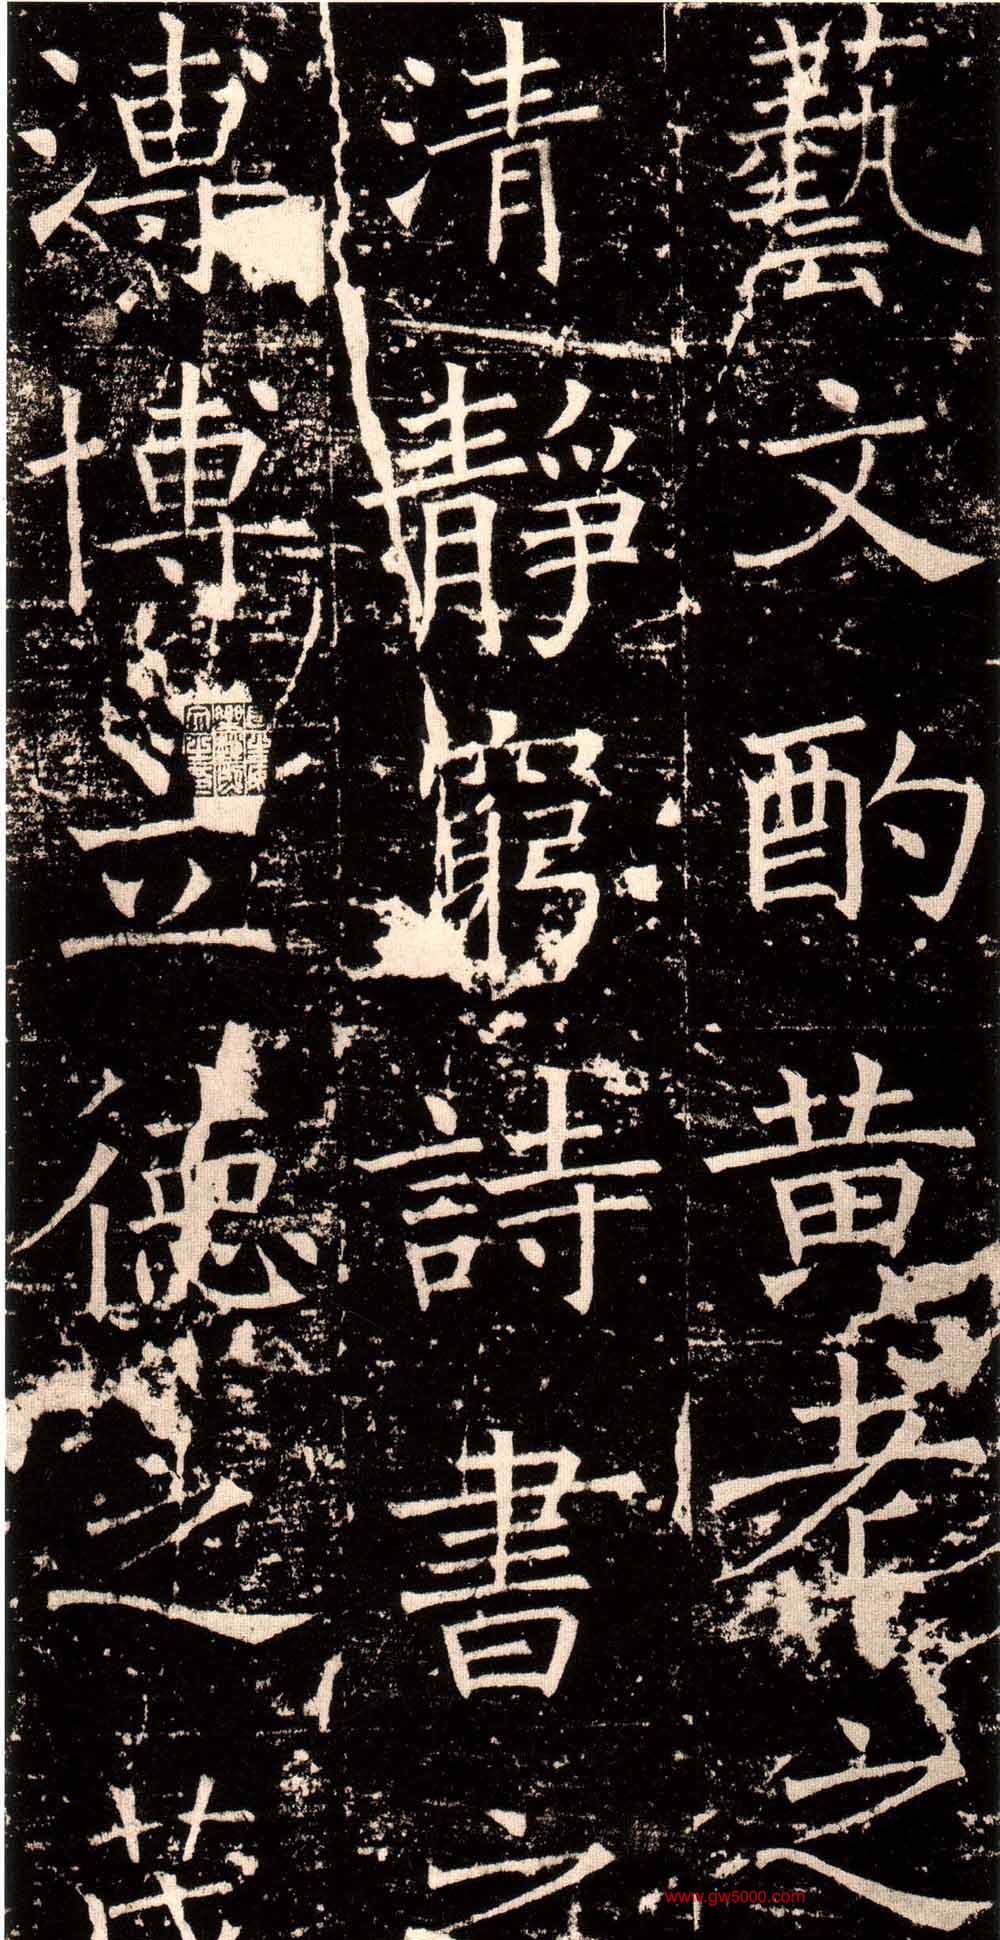 藝文酌黄老之
清靜窮詩書之
溥博立德之茂
www.gw5000.com